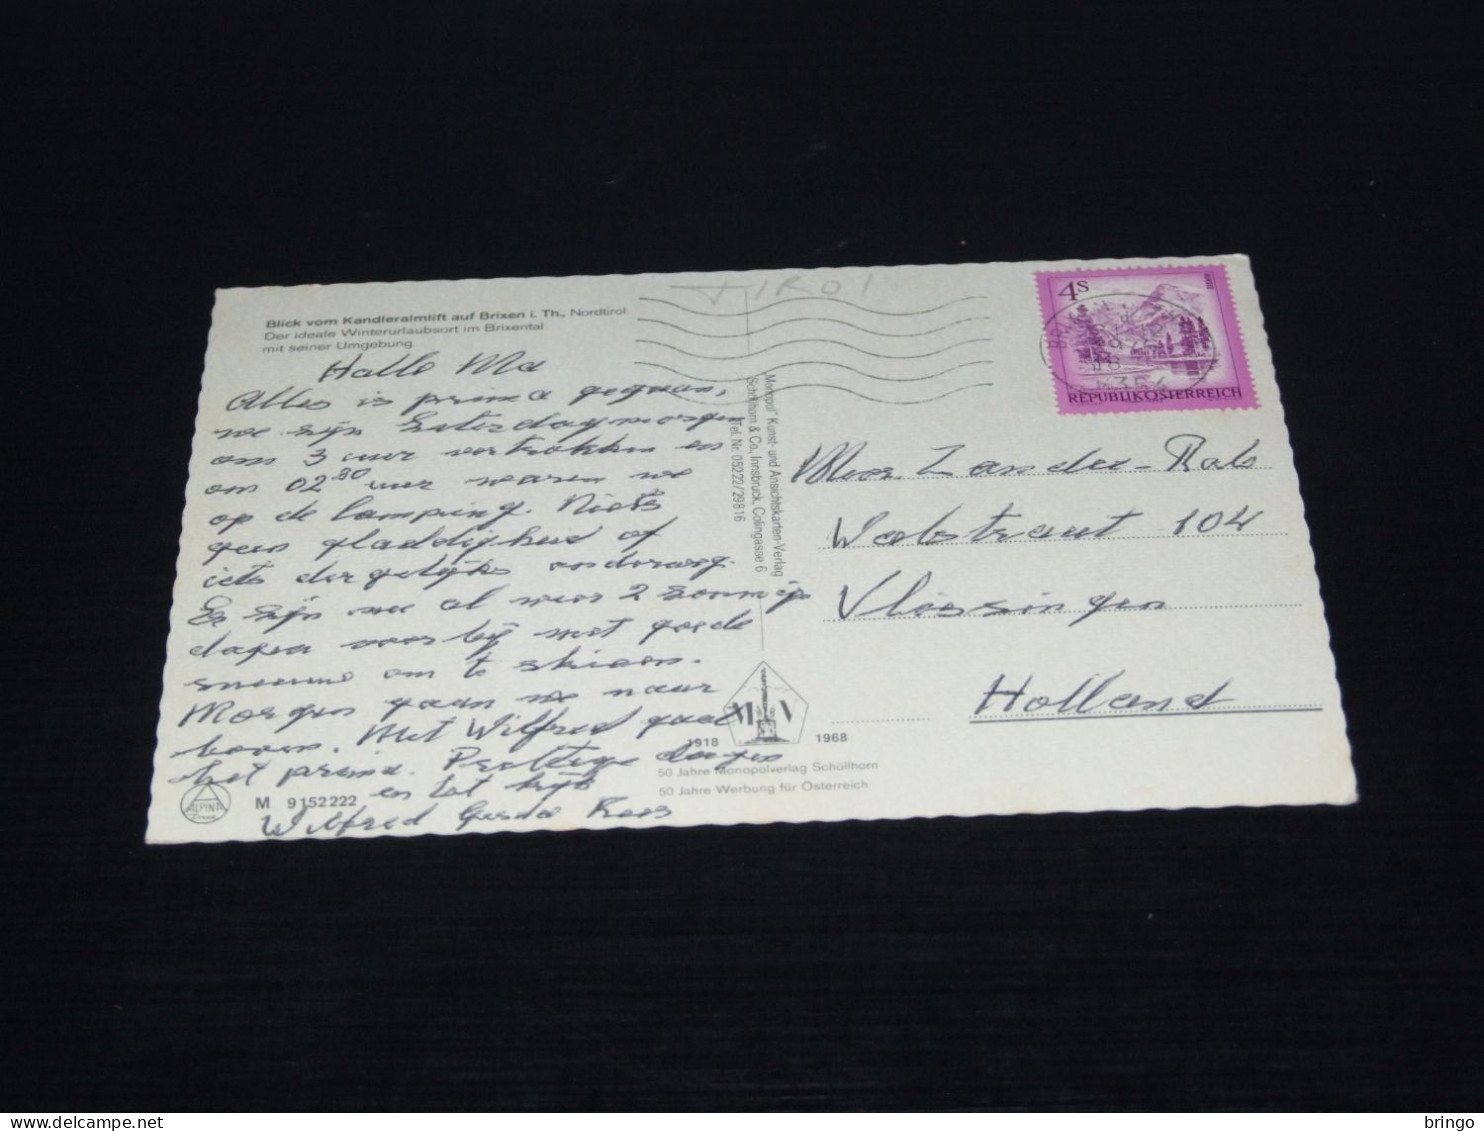 TIROL
Blick vom Kandleralmlift auf Brixen i. Th., Nordtirol
Der ideale Winterurlaubsort im Brixental
mit seiner Umgebung
Hallo Ma
Alles is prima gegaan,
we zijn Saterdagmorgen
om 3 uur vertrokken en
om 02 30 uur waren we
op de Camping. Niets
geen gladdigheid of
iets dergelijks onderweg.
Er zijn me al weer 2 zonnige
dagen voorbij met goede
sneeuw om te skieën.
Morgen gaan we naar
boven. Met Wilfred gaat
het prima. Prettige dagen
en tot kijk
Wilfred Gerda Kees
ALPINA
Druck
M 9152222
Monopol" Kunst- und Ansichtskarten-Verlag
Schöllhorn & Co., Innsbruck, Colingasse 6
Tel. Nr. 05222/29816
M V
1918 1968
50 Jahre Monopolverlag Schöllhorn
50 Jahre Werbung für Österreich
4S
REPUBLIK ÖSTERREICH
6364
Mevr. Zander-Rab
Walstraat 104
Vlissingen
Holland
delcampe.net
bringo